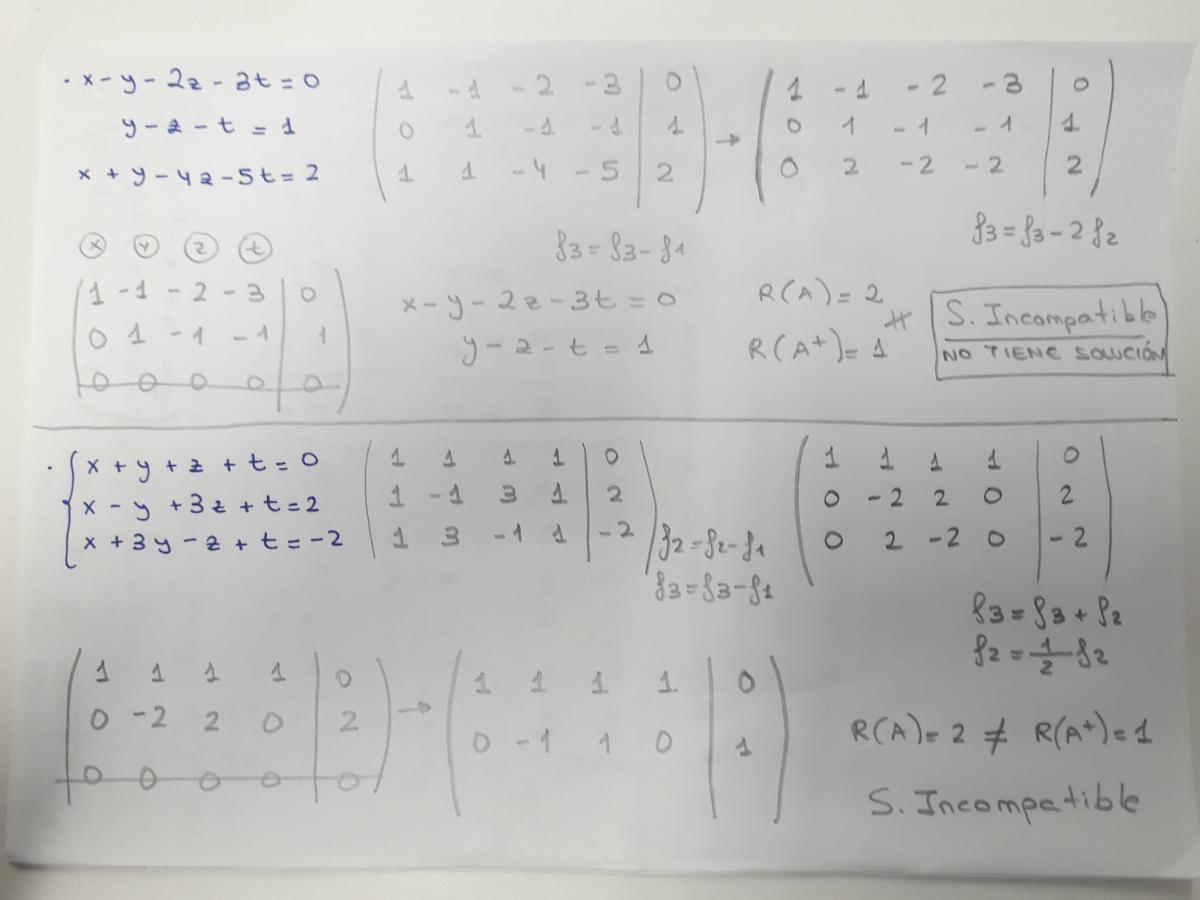 · x - y - 2z - 3t = 0
y - z - t = 1
x + y - 4z - 5t = 2
1 -1 -2 -3 | 0
0 1 -1 -1 | 1
1 1 -4 -5 | 2
→
1 -1 -2 -3 | 0
0 1 -1 -1 | 1
0 2 -2 -2 | 2
f3 = f3 - f1
f3 = f3 - 2 f2
x y z t
1 -1 -2 -3 | 0
0 1 -1 -1 | 1
0 0 0 0 | 0
x - y - 2z - 3t = 0
y - z - t = 1
R(A) = 2
≠
R(A+) = 1
S. Incompatible
NO TIENE SOLUCIÓN
· x + y + z + t = 0
x - y + 3z + t = 2
x + 3y - z + t = -2
1 1 1 1 | 0
1 -1 3 1 | 2
1 3 -1 1 | -2
f2 = f2 - f1
f3 = f3 - f1
1 1 1 1 | 0
0 -2 2 0 | 2
0 2 -2 0 | -2
f3 = f3 + f2
f2 = 1/2 f2
1 1 1 1 | 0
0 -2 2 0 | 2
0 0 0 0 | 0
→
1 1 1 1 | 0
0 -1 1 0 | 1
R(A) = 2 ≠ R(A+) = 1
S. Incompatible